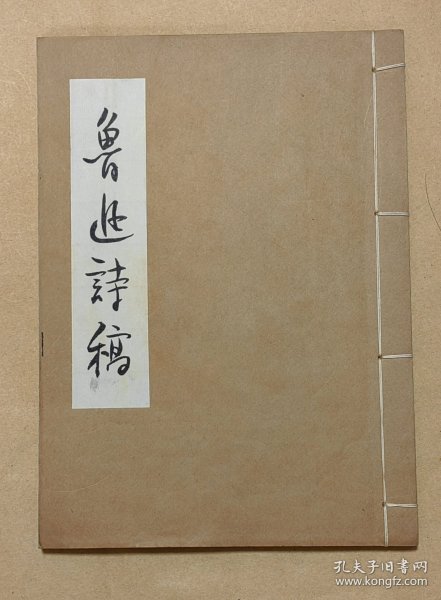 魯迅詩稿
孔夫子旧书网
www.kongfz.com